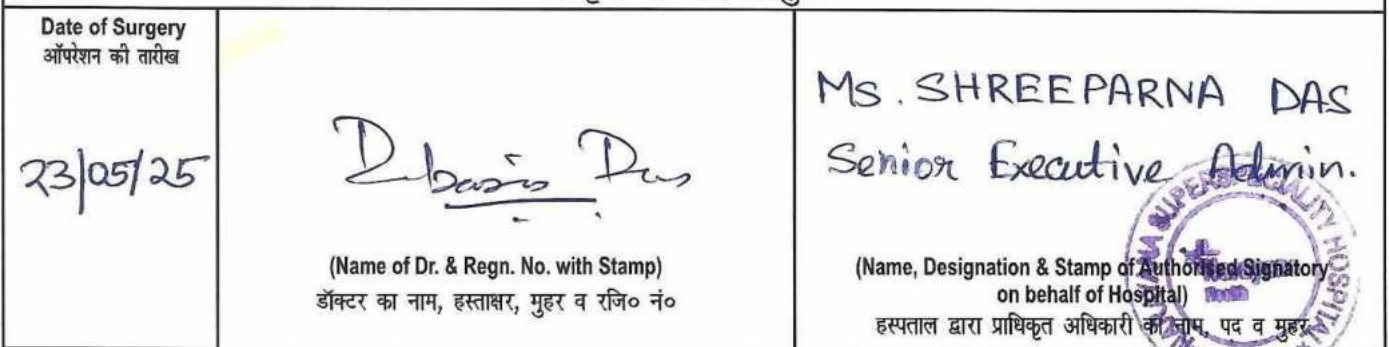 Date of Surgery
ऑपरेशन की तारीख
23/05/25
Debasis Das
(Name of Dr. & Regn. No. with Stamp)
डॉक्टर का नाम, हस्ताक्षर, मुहर व रजि० नं०
Ms. SHREEPARNA DAS
Senior Executive Admin.
(Name, Designation & Stamp of Authorised Signatory
on behalf of Hospital)
हस्पताल द्वारा प्राधिकृत अधिकारी का नाम, पद व मुहर
NARAYANA SUPERSPECIALITY HOSPITAL